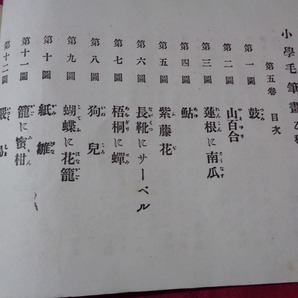 小學毛筆畫
第五卷 目次
第一圖 鼓
第二圖 山百合
第三圖 蓮根に南瓜
第四圖 鮎
第五圖 紫藤花
第六圖 長靴にサーベル
第七圖 梧桐に蟬
第八圖 狗兒
第九圖 蝴蝶に花籠
第十圖 紙雛
第十一圖 籠に蜜柑
第十二圖